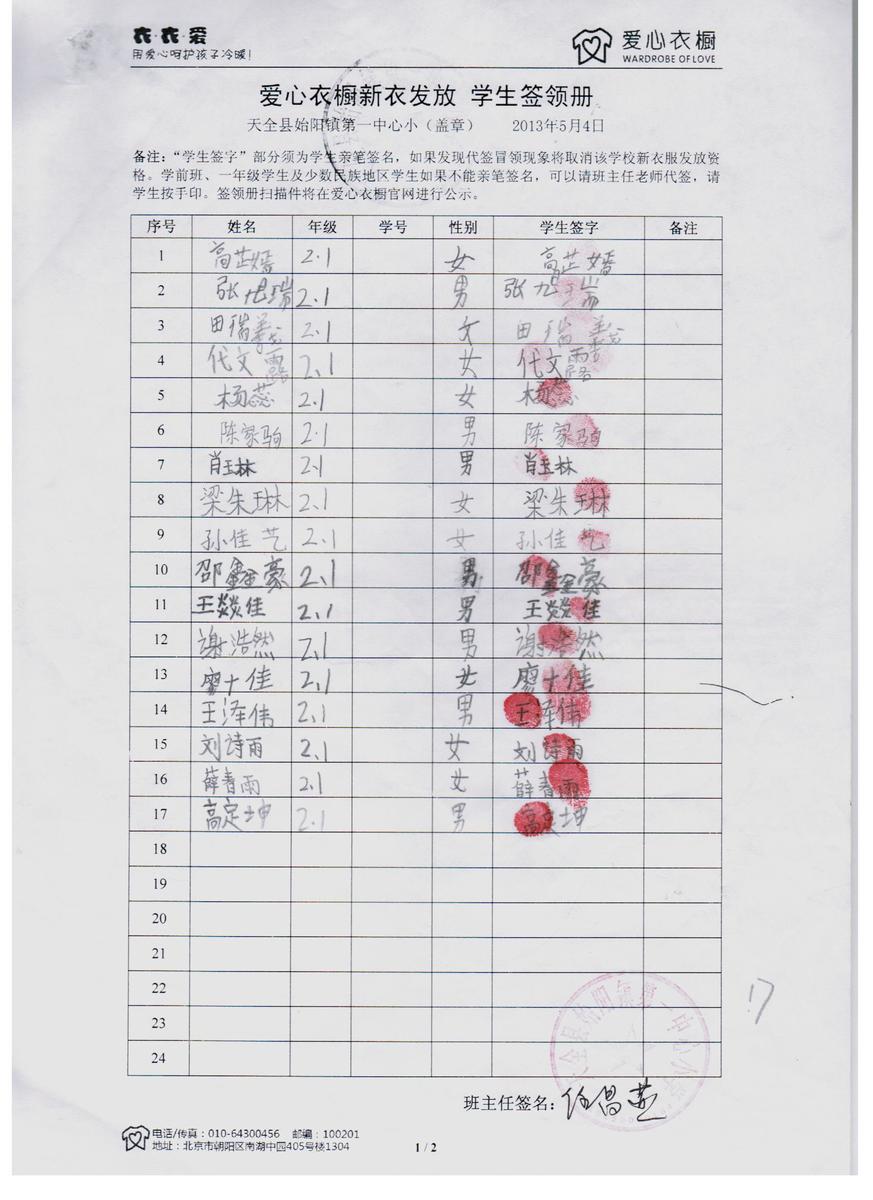 衣·衣·爱
用爱心呵护孩子冷暖!
爱心衣橱
WARDROBE OF LOVE
爱心衣橱新衣发放 学生签领册
天全县始阳镇第一中心小（盖章） 2013年5月4日
备注："学生签字"部分须为学生亲笔签名，如果发现代签冒领现象将取消该学校新衣服发放资
格。学前班、一年级学生及少数民族地区学生如果不能亲笔签名，可以请班主任老师代签，请
学生按手印。签领册扫描件将在爱心衣橱官网进行公示。
序号 姓名 年级 学号 性别 学生签字 备注
1 高芷嫣 2.1 女 高芷嫣
2 张 瑞 2.1 男 张
3 田瑞 2.1 女 田瑞
4 代文露 2.1 女 代文露
5 杨蕊 2.1 女 杨蕊
6 陈家驹 2.1 男 陈家驹
7 肖玉林 2.1 男 肖玉林
8 梁朱琳 2.1 女 梁朱琳
9 孙佳艺 2.1 女 孙佳艺
10 邵鑫豪 2.1 男 邵鑫豪
11 王燚佳 2.1 男 王燚佳
12 谢浩然 2.1 男 谢浩然
13 廖十佳 2.1 女 廖十佳
14 王泽伟 2.1 男 王泽伟
15 刘诗雨 2.1 女 刘诗雨
16 薛春雨 2.1 女 薛春雨
17 高定坤 2.1 男 高定坤
18
19
20
21
22
23
24
17
天全县始阳镇第一中心小学
班主任签名：任昌燕
电话/传真：010-64300456 邮编：100201
地址：北京市朝阳区南湖中园405号楼1304
1 / 2